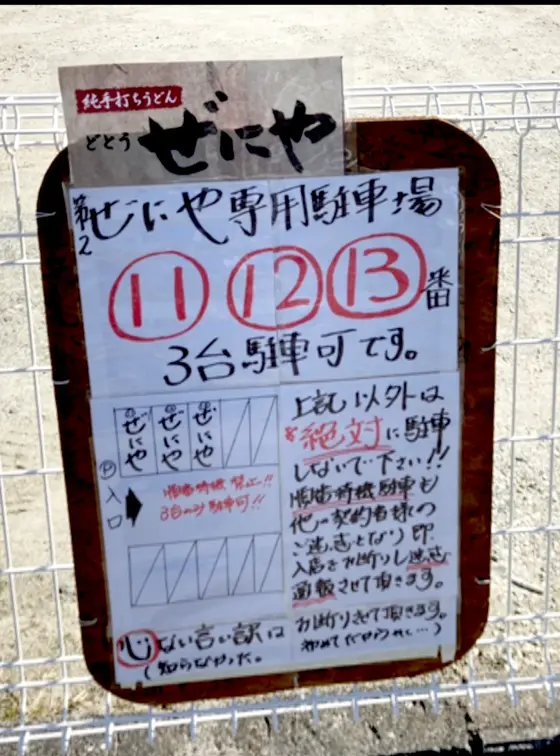 純手打ちうどん
どとう ぜにや
第2 ぜにや専用駐車場
11 12 13番
3台駐車可です。
ぜにや ぜにや ぜにや
P入口
順番待機禁止!!
3台のみ駐車可!!
上記以外は
絶対に駐車
しないで下さい!!
順番待機駐車も
他の契約者様の
ご迷惑となり即
入店をお断りし迷惑
通報させて頂きます。
心ない言い訳は
(知らなかった。
お断りさせて頂きます。